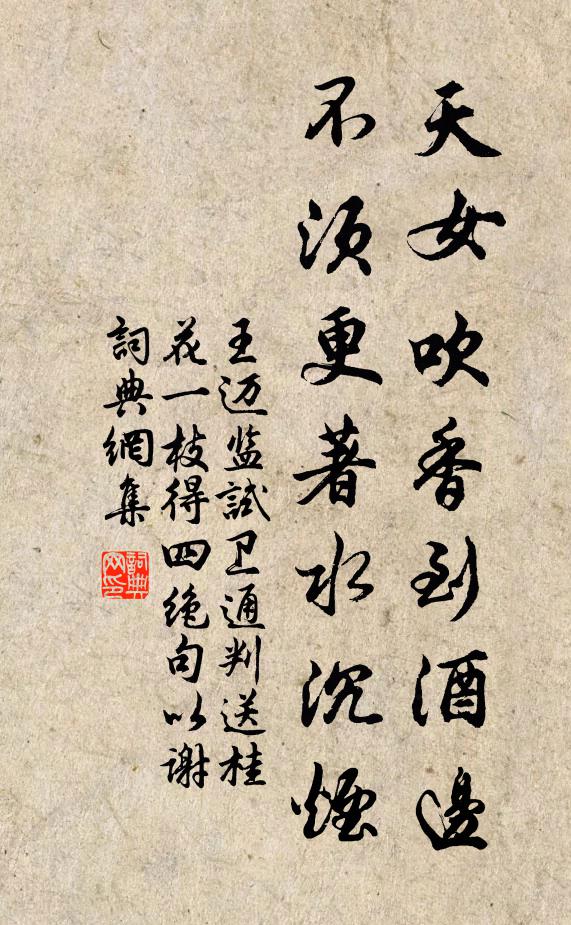 天女吹香到酒邊
不須更著水沉煙
王迈监試卫通判送桂
花一枝得四絶句以谢
詞典網集
詞典网印